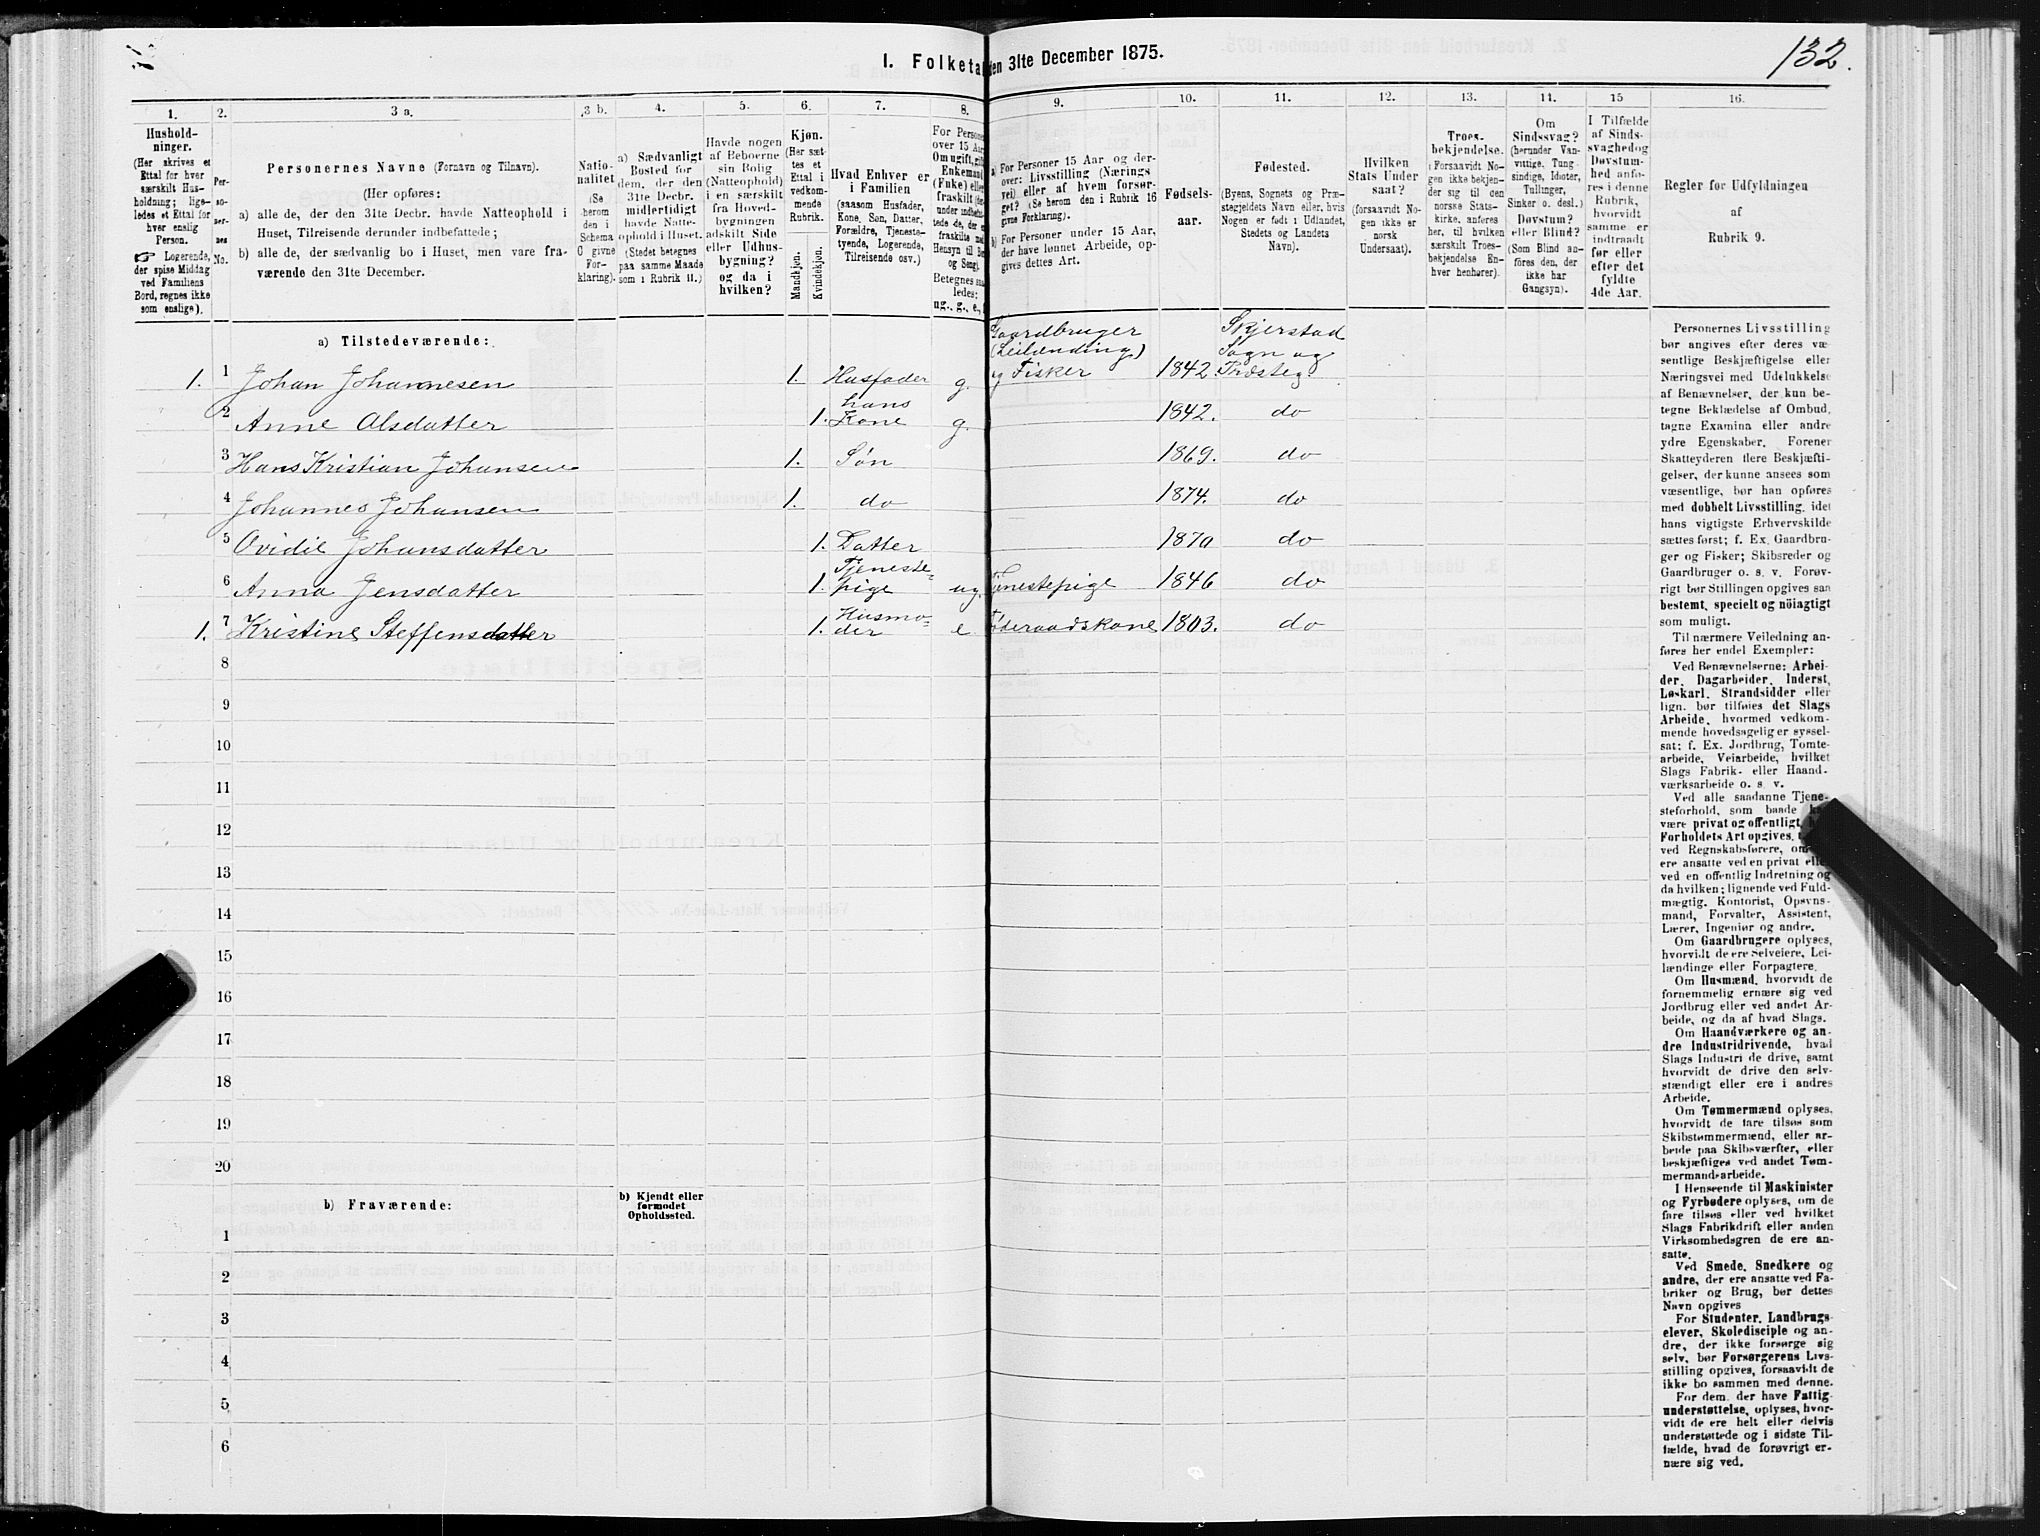 132.
I. Folketal den 31te December 1875.
1.
Hushold-
ninger.
(Her skrives et
Ettal for hver
særskilt Hus-
holdning; lige-
ledes et Ettal for
hver enslig
Person.
Logerende,
der spise Middag
ved Familiens
Bord, regnes ikke
som enslige).
2.
Per-
so-
ner-
nes
No.
3 a.
Personernes Navne (Fornavn og Tilnavn).
(Her opføres:
a) alle de, der den 31te Decbr. havde Natteophold i
Huset, Tilreisende derunder indbefattede;
b) alle de, der sædvanlig bo i Huset, men vare fra-
værende den 31te December.
3 b.
Natio-
nalitet
(Se
herom
den i
Schema
C givne
For-
klaring).
4.
a) Sædvanligt
Bosted for
dem, der den
31te Decbr.
midlertidigt
havde Natte-
ophold i Huset.
(Stedet betegnes
paa samme Maade
som i Rubrik 11.)
5.
Havde nogen
af Beboerne
sin Bolig
(Natteophold)
i en særskilt
fra Hoved-
bygningen
adskilt Side
eller Udhus-
bygning?
og da i
hvilken?
6.
Kjøn.
(Her sæt-
tes et
Ettal i
vedkom-
mende
Rubrik.
Mandkjøn.
Kvindekjøn.
7.
Hvad Enhver er
i Familien
(saasom Husfader,
Kone, Søn, Datter,
Forældre, Tjeneste-
tyende, Logerende,
Tilreisende osv.)
8.
For Personer
over 15 Aar
Om ugift, gift,
Enkemand
(Enke) eller
fraskilt
Betegnes saa-
ledes:
ug., g., e.,
9.
a) For Personer 15 Aar og der-
over: Livsstilling (Nærings
vei) eller af hvem forsør-
get? (Se herom den i Rubrik 16
givne Forklaring).
b) For Personer under 15 Aar,
der have lønnet Arbeide, op-
gives dettes Art.
10.
Fødsels-
aar.
11.
Fødested.
(Byens, Sognets og Præ-
stegjeldets Navn eller, hvis
Nogen er født i Udlandet,
Stedets og Landets
Navn).
12.
Hvilken
Stats Under
saat?
(forsaavidt No-
gen ikke er
norsk
Undersaat).
13.
Troes-
bekjendelse.
(Forsaavidt No-
gen ikke bekjen-
der sig til den
norske Stats-
kirke, anføres
her, til hvilken
særskilt Troes-
bekjendelse En-
hver henhører).
14.
Om
Sindssvag?
(herunder Van-
vittige, Tung-
sindige, Idioter,
Tullinger,
Sinker o. desl.)
Døvstum?
eller Blind?
(Som Blind an-
føres den, der
ikke har
Gangsyn).
15
I Tilfælde
af Sinds-
svaghed og
Døvstum-
hed anfø-
res i denne
Rubrik,
hvorvidt
samme er
indtraadt
før eller
efter det
fyldte
4de Aar.
16.
Regler for Udfyldningen
af
Rubrik 9.
a) Tilstedeværende:
1. 1 Johan Johannesen 1. Husfader g. Gaardbruger (Leilænding) og Fisker 1842 Skjerstad Sogn og Præsteg.
2 Anne Olsdatter 1. hans Kone g. 1842. do
3 Hans Kristian Johansen 1. Søn 1869. do
4 Johannes Johansen 1. do 1874. do
5 Ovidie Johansdatter 1. Datter 1870 do
6 Anna Jensdatter 1. Tjeneste-pige ug. Tjenestepige 1846 do
1. 7 Kristine Steffensdatter 1. Husmo-der e Føderaadskone 1803. do
8
9
10
11
12
13
14
15
16
17
18
19
20
b) Fraværende:
b) Kjendt eller
formodet
Opholdssted.
1
2
3
4
5
6
Personernes Livsstilling
bør angives efter deres væ
sentlige Beskjæftigelse eller
Næringsvei med Udelukkelse
af Benævnelser, der kun be-
tegne Beklædelse af Ombud,
tagne Examina eller andre
ydre Egenskaber. Forener
Skatteyderen flere Beskjæfti-
gelser, der kunne ansees som
væsentlige, bør han opføres
med dobbelt Livsstilling, idet
hans vigtigste Erhvervskilde
sættes først; f. Ex. Gaardbru-
ger og Fisker; Skibsreder og
Gaardbruger o. s. v. Forøv-
rigt bør Stillingen opgives saa
bestemt, specielt og nöiagtigt
som muligt.
Til nærmere Veiledning an-
føres her endel Exempler:
Ved Benævnelserne: Arbei-
der, Dagarbeider, Inderst,
Løskarl, Strandsidder eller
lign. bør tilføies det Slags
Arbeide, hvormed vedkom-
mende hovedsagelig er syssel-
sat; f. Ex. Jordbrug, Tomte-
arbeide, Veiarbeide, hvilket
Slags Fabrik- eller Haand-
værksarbeide o. s. v.
Ved alle saadanne Tjene-
steforhold, som baade
være privat og offentligt,
Forholdets Art opgives,
ved Regnskabsførere, om
ere ansatte ved en privat eller
ved en offentlig Indretning og
da hvilken; lignende ved Fuld-
mægtig, Kontorist, Opsyns-
mand, Forvalter, Assistent,
Lærer, Ingeniør og andre.
Om Gaardbrugere oplyses,
hvorvidt de ere Selveiere, Lei-
lændinge eller Forpagtere.
Om Husmænd, hvorvidt de
fornemmelig ernære sig ved
Jordbrug eller ved andet Ar-
beide, og da af hvad Slags.
Om Haandværkere og an-
dre Industridrivende, hvad
Slags Industri de drive, samt
hvorvidt de drive den selv-
stændigt eller ere i andres
Arbeide.
Om Tømmermænd oplyses,
hvorvidt de fare tilsøs som
Skibstømmermænd, eller ar-
beide paa Skibsværfter, eller
beskjæftiges ved andet Tøm-
mermandsarbeide.
I Henseende til Maskinister
og Fyrbødere oplyses, om de
fare tilsøs eller ved hvilket
Slags Fabrikdrift eller anden
Virksomhedsgren de ere an-
satte.
Ved Smede, Snedkere og
andre, der ere ansatte ved Fa-
briker og Brug, bør dettes
Navn opgives
For Studenter, Landbrugs-
elever, Skoledisciple og an-
dre, der ikke forsørge sig
selv, bør Forsørgerens Livs-
stilling opgives, forsaavidt de
ikke bo sammen med denne.
For dem, der have Fattig-
understøttelse, oplyses, hvor-
vidt de ere helt eller delvis
understøttede og i sidste Til-
fælde, hvad de forøvrigt er-
nære sig ved.